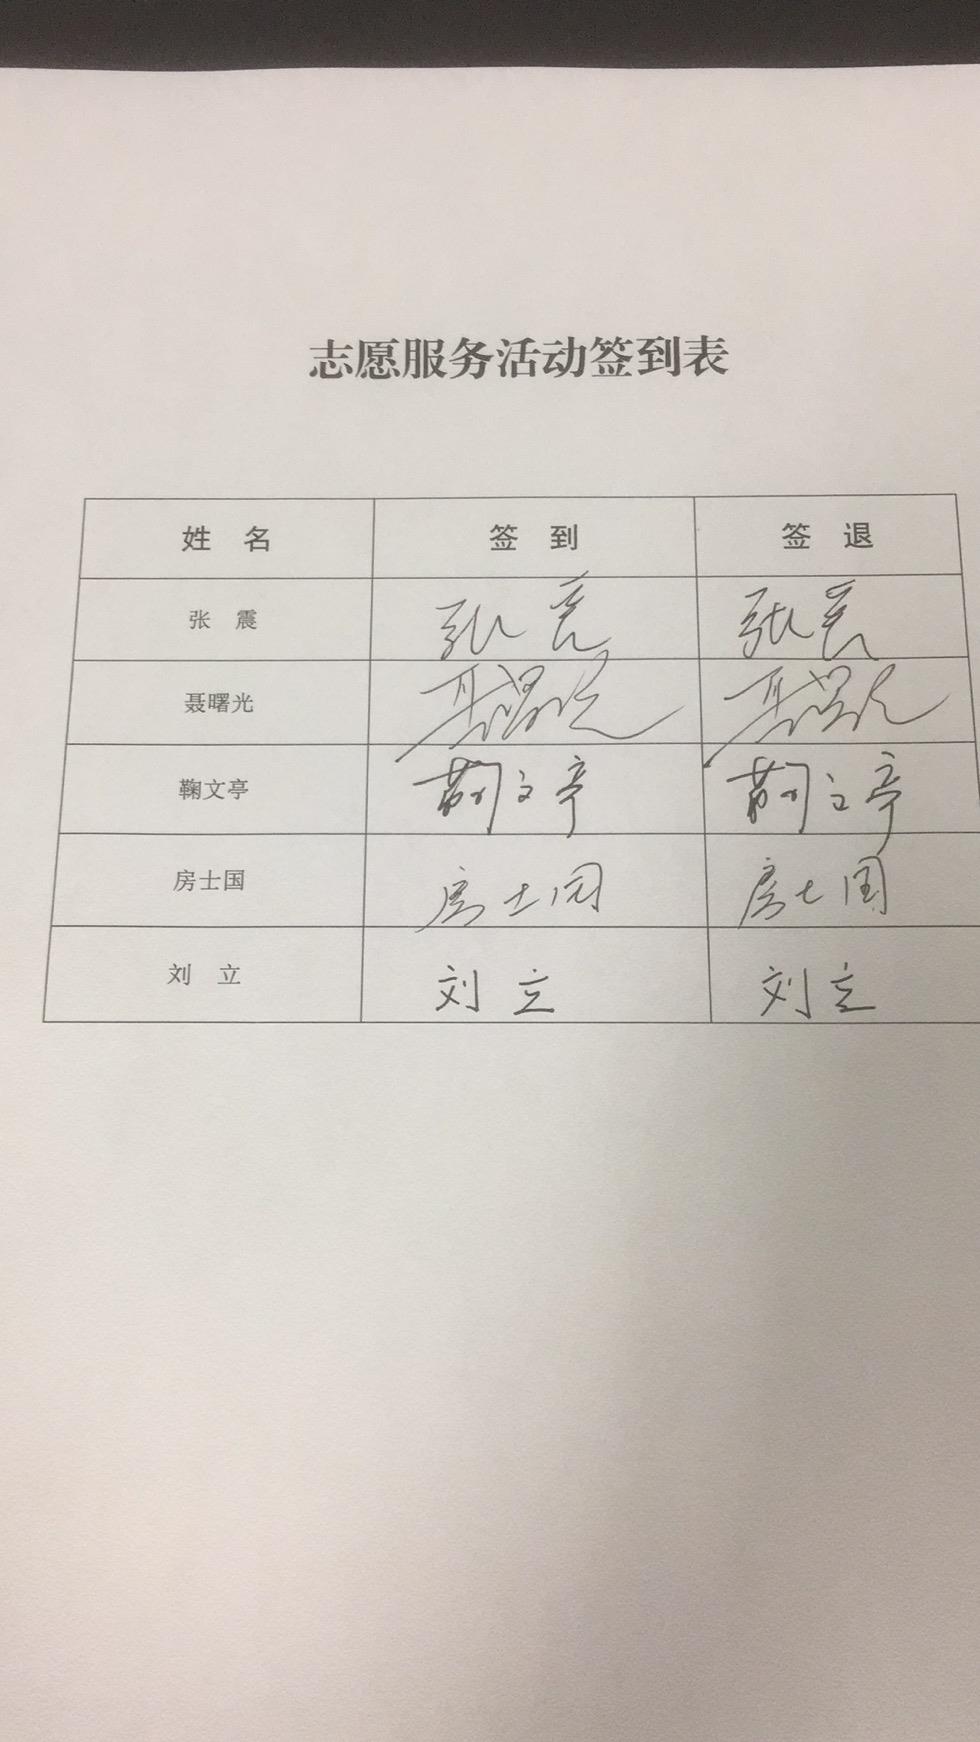 志愿服务活动签到表
姓 名 签 到 签 退
张 震 张 震 张 震
聂曙光 聂曙光 聂曙光
鞠文亭 鞠文亭 鞠文亭
房士国 房士国 房士国
刘 立 刘 立 刘 立